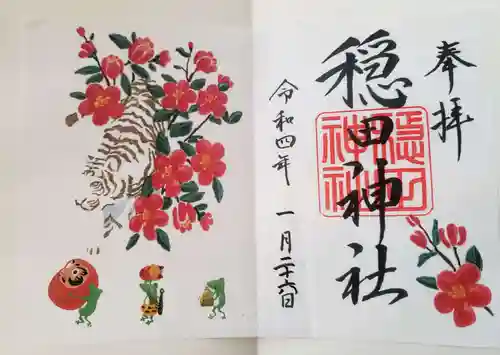 奉拝
穏田神社
穏田
神社
令和四年
一月二十六日